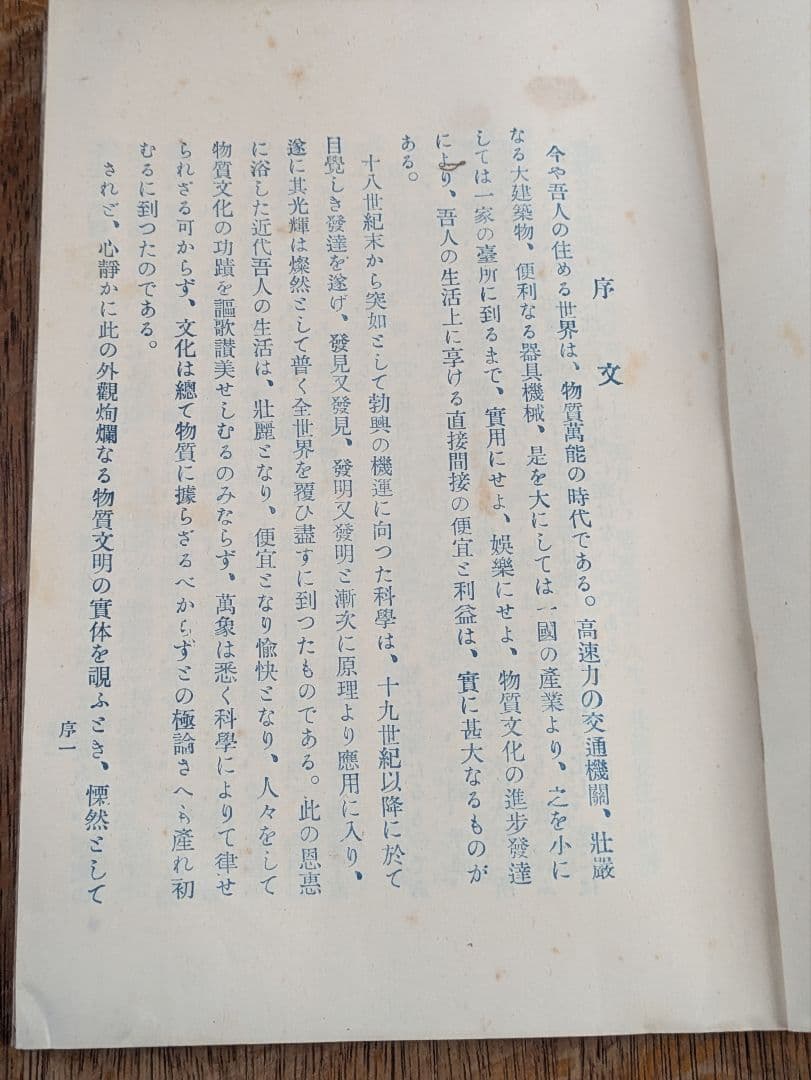 序文
今や吾人の住める世界は、物質萬能の時代である。高速力の交通機關、壯嚴
なる大建築物、便利なる器具機械、是を大にしては一國の產業より、之を小に
しては一家の臺所に到るまで、實用にせよ、娛樂にせよ、物質文化の進步發達
により、吾人の生活上に享ける直接間接の便宜と利益は、實に甚大なるものが
ある。
十八世紀末から突如として勃興の機運に向つた科學は、十九世紀以降に於て
目覺しき發達を遂げ、發見又發見、發明又發明と漸次に原理より應用に入り、
遂に其光輝は燦然として普く全世界を覆ひ盡すに到つたものである。此の恩惠
に浴した近代吾人の生活は、壯麗となり、便宜となり愉快となり、人々をして
物質文化の功蹟を謳歌讃美せしむるのみならず、萬象は悉く科學によりて律せ
られざる可からず、文化は總て物質に據らざるべからずとの極論さへも產れ初
むるに到つたのである。
されど、心靜かに此の外觀絢爛なる物質文明の實体を覗ふとき、慄然として
序一